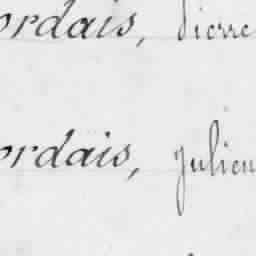 ordais, Pierre
ordais, Julien